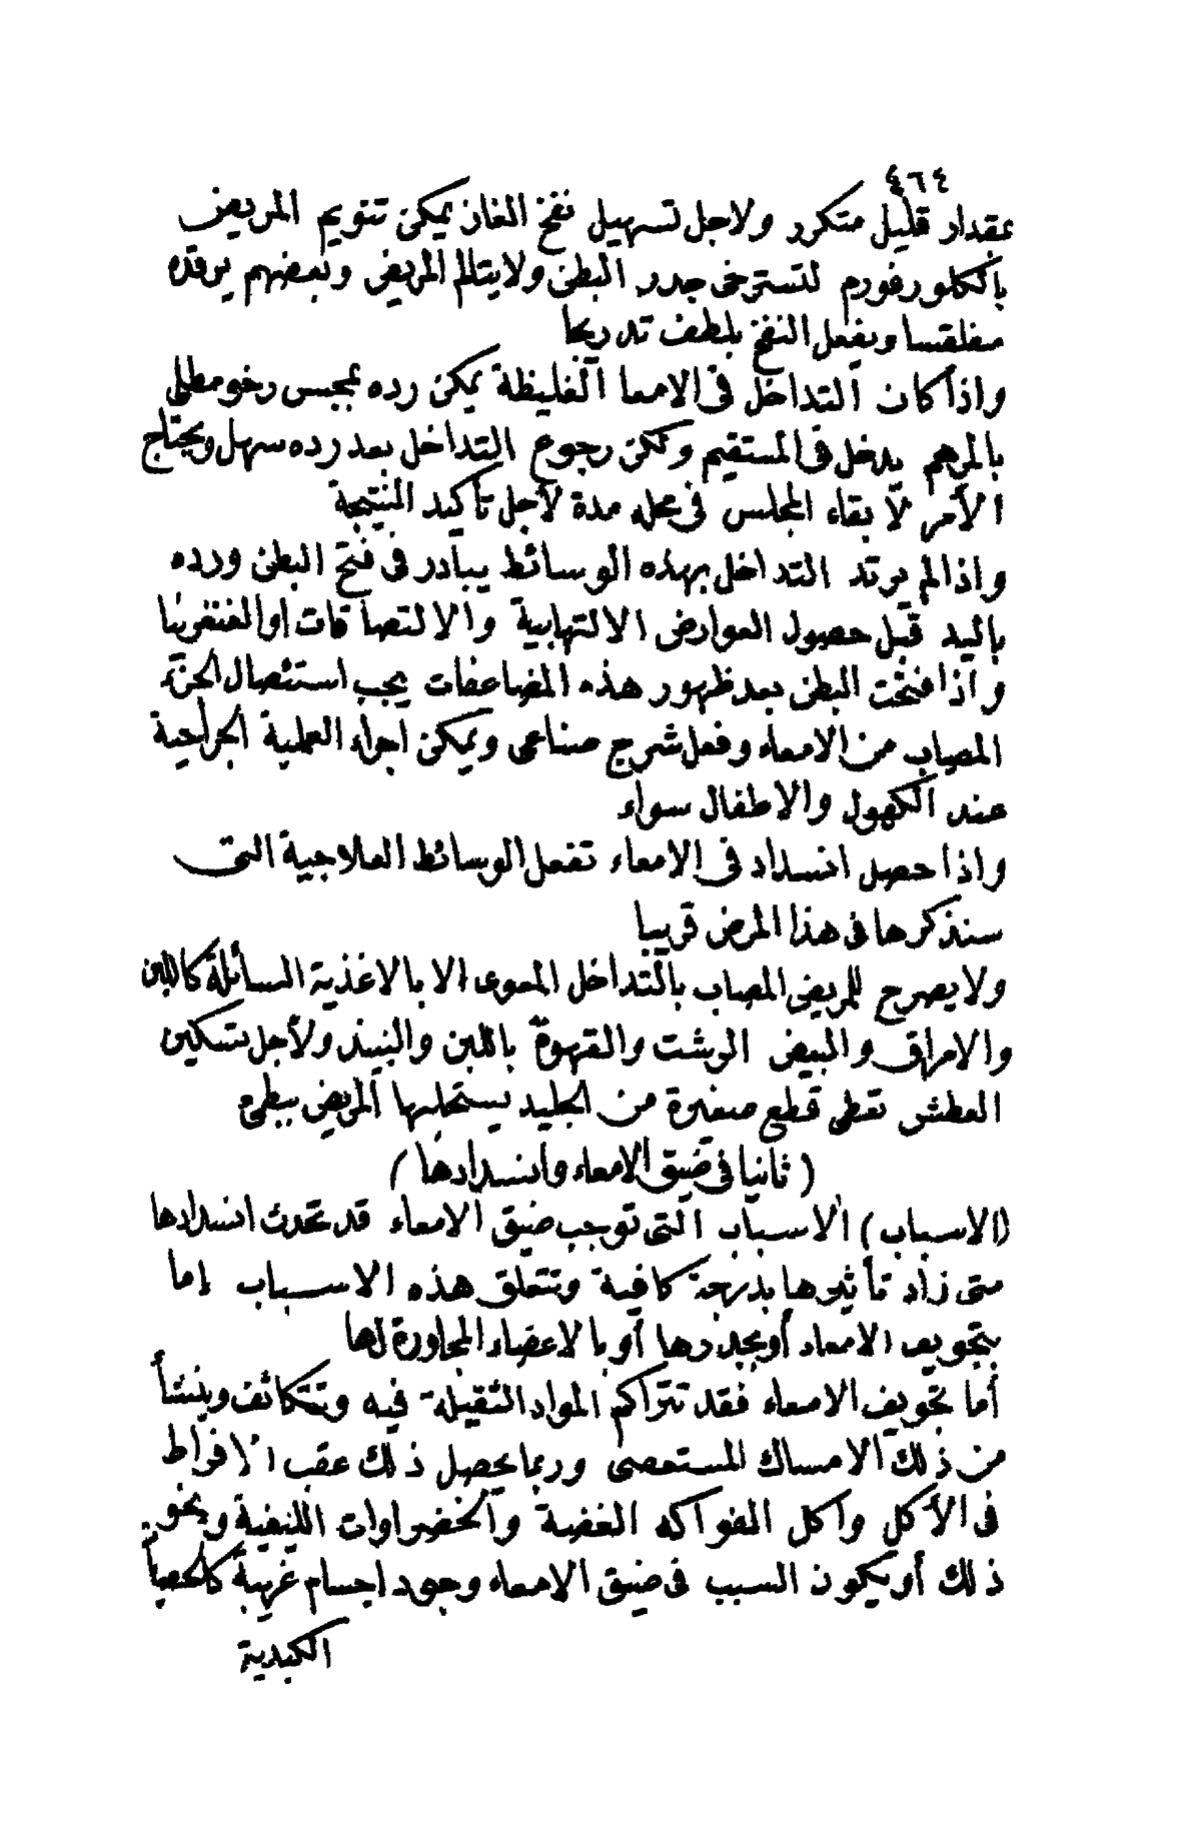 ٤٦٤
بمقدار قليل متكرر ولاجل تسهيل نفخ الغاز يمكن تنويم المريض
بالكلورفورم لتسترخى جدر البطن ولا يتالم المريض وبعضهم يرقده
مغلقسا ويفعل النفخ بلطف تدريجا
واذا كان التداخل فى الامعا الغليظة يمكن رده بمجس رخو مطلى
بالمرهم يدخل فى المستقيم ولكن رجوع التداخل بعد رده سهل ويحتاج
الأمر لا بقاء المجلس فى محله مدة لأجل تأكيد النتيجة
واذا لم يرتد التداخل بهذه الوسائط يبادر فى فتح البطن ورده
باليد قبل حصول العوارض الالتهابية والالتصاقات او الغنغرينا
واذا فتحت البطن بعد ظهور هذه المضاعفات يجب استئصال الجزء
المصاب من الامعاء وفعل شرج صناعى ويمكن اجراء العملية الجراحية
عند الكهول والاطفال سواء
واذا حصل انسداد فى الامعاء تفعل الوسائط العلاجية التى
سنذكرها فى هذا المرض قريبا
ولا يصرح للمريض المصاب بالتداخل المعوى الا بالاغذية السائلة كاللبن
والامراق والبيض البرشت والقهوة باللبن والنبيذ ولأجل تسكين
العطش تعطى قطع صغيرة من الجليد يستحلبها المريض ببطئ
( ثانيا فى ضيق الامعاء وانسدادها )
(الاسباب) الاسباب التى توجب ضيق الامعاء قد تحدث انسدادها
متى زاد تأثيرها بدرجة كافية وتتعلق هذه الاسباب إما
بتجويف الامعاء أو بجدرها أو بالاعضاء المجاورة لها
أما تجويف الامعاء فقد تتراكم المواد الثقيلة فيه وتتكاثف وينشأ
من ذلك الامساك المستعصى وربما يحصل ذلك عقب الافراط
فى الأكل وأكل الفواكه الغضة والخضراوات الليفية ونحو
ذلك أو يكون السبب فى ضيق الامعاء وجود اجسام غريبة كالحصيات
الكبدية